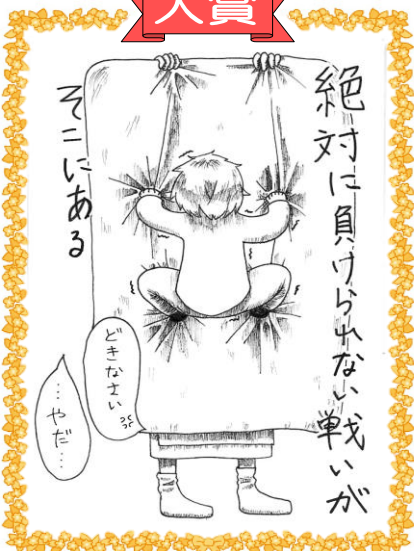 大賞
絶対に負けられない戦いが
そこにある
どきなさい
…やだ…